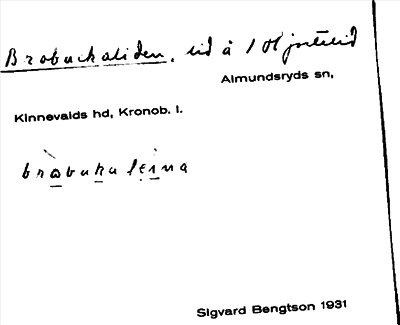 Brobackaliden, lid å 1 Hjortelid
Almundsryds sn,
Kinnevalds hd, Kronob. l.
Sigvard Bengtson 1931